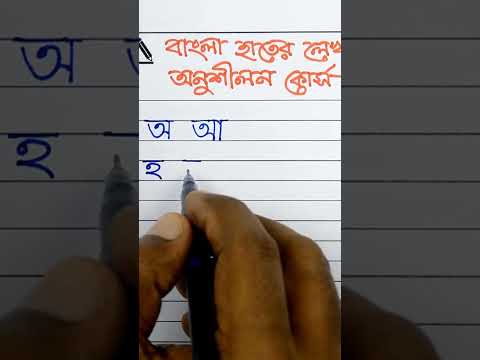 বাংলা হাতের লেখ
অনুশীলন কোর্স
অ আ
হ